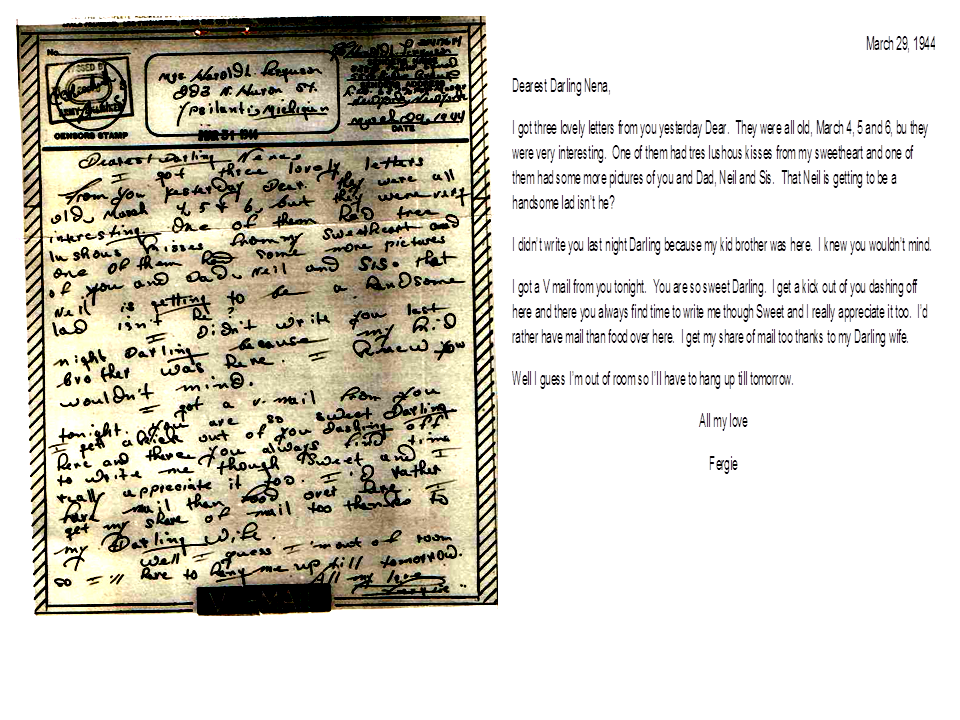 No.
PASSED BY
ARMY EXAMINER
CENSORS STAMP
Mrs Harold L. Ferguson
893 N. Huron St.
Ypsilanti Michigan
MAR 31 1944
March 29, 1944
DATE
Dearest Darling Nena,
I got three lovely letters
from you yesterday Dear. They were all
old, March 4, 5 & 6, but they were very
interesting. One of them had tres
lushous kisses from my sweetheart and
one of them had some more pictures
of you and Dad, Neil and Sis. That
Neil is getting to be a handsome
lad isn't he?
I didn't write you last
night Darling because my kid
brother was here. I knew you
wouldn't mind.
I got a v-mail from you
tonight. You are so sweet Darling.
I get a kick out of you dashing off
here and there you always find time
to write me though Sweet and I
really appreciate it too. I'd rather
have mail than food over here. I
get my share of mail too thanks to
my Darling wife.
Well I guess I'm out of room
so I'll have to hang me up till tomorrow.
All my love
Fergie
March 29, 1944
Dearest Darling Nena,
I got three lovely letters from you yesterday Dear. They were all old, March 4, 5 and 6, bu they
were very interesting. One of them had tres lushous kisses from my sweetheart and one of
them had some more pictures of you and Dad, Neil and Sis. That Neil is getting to be a
handsome lad isn't he?
I didn't write you last night Darling because my kid brother was here. I knew you wouldn't mind.
I got a V mail from you tonight. You are so sweet Darling. I get a kick out of you dashing off
here and there you always find time to write me though Sweet and I really appreciate it too. I'd
rather have mail than food over here. I get my share of mail too thanks to my Darling wife.
Well I guess I'm out of room so I'll have to hang up till tomorrow.
All my love
Fergie